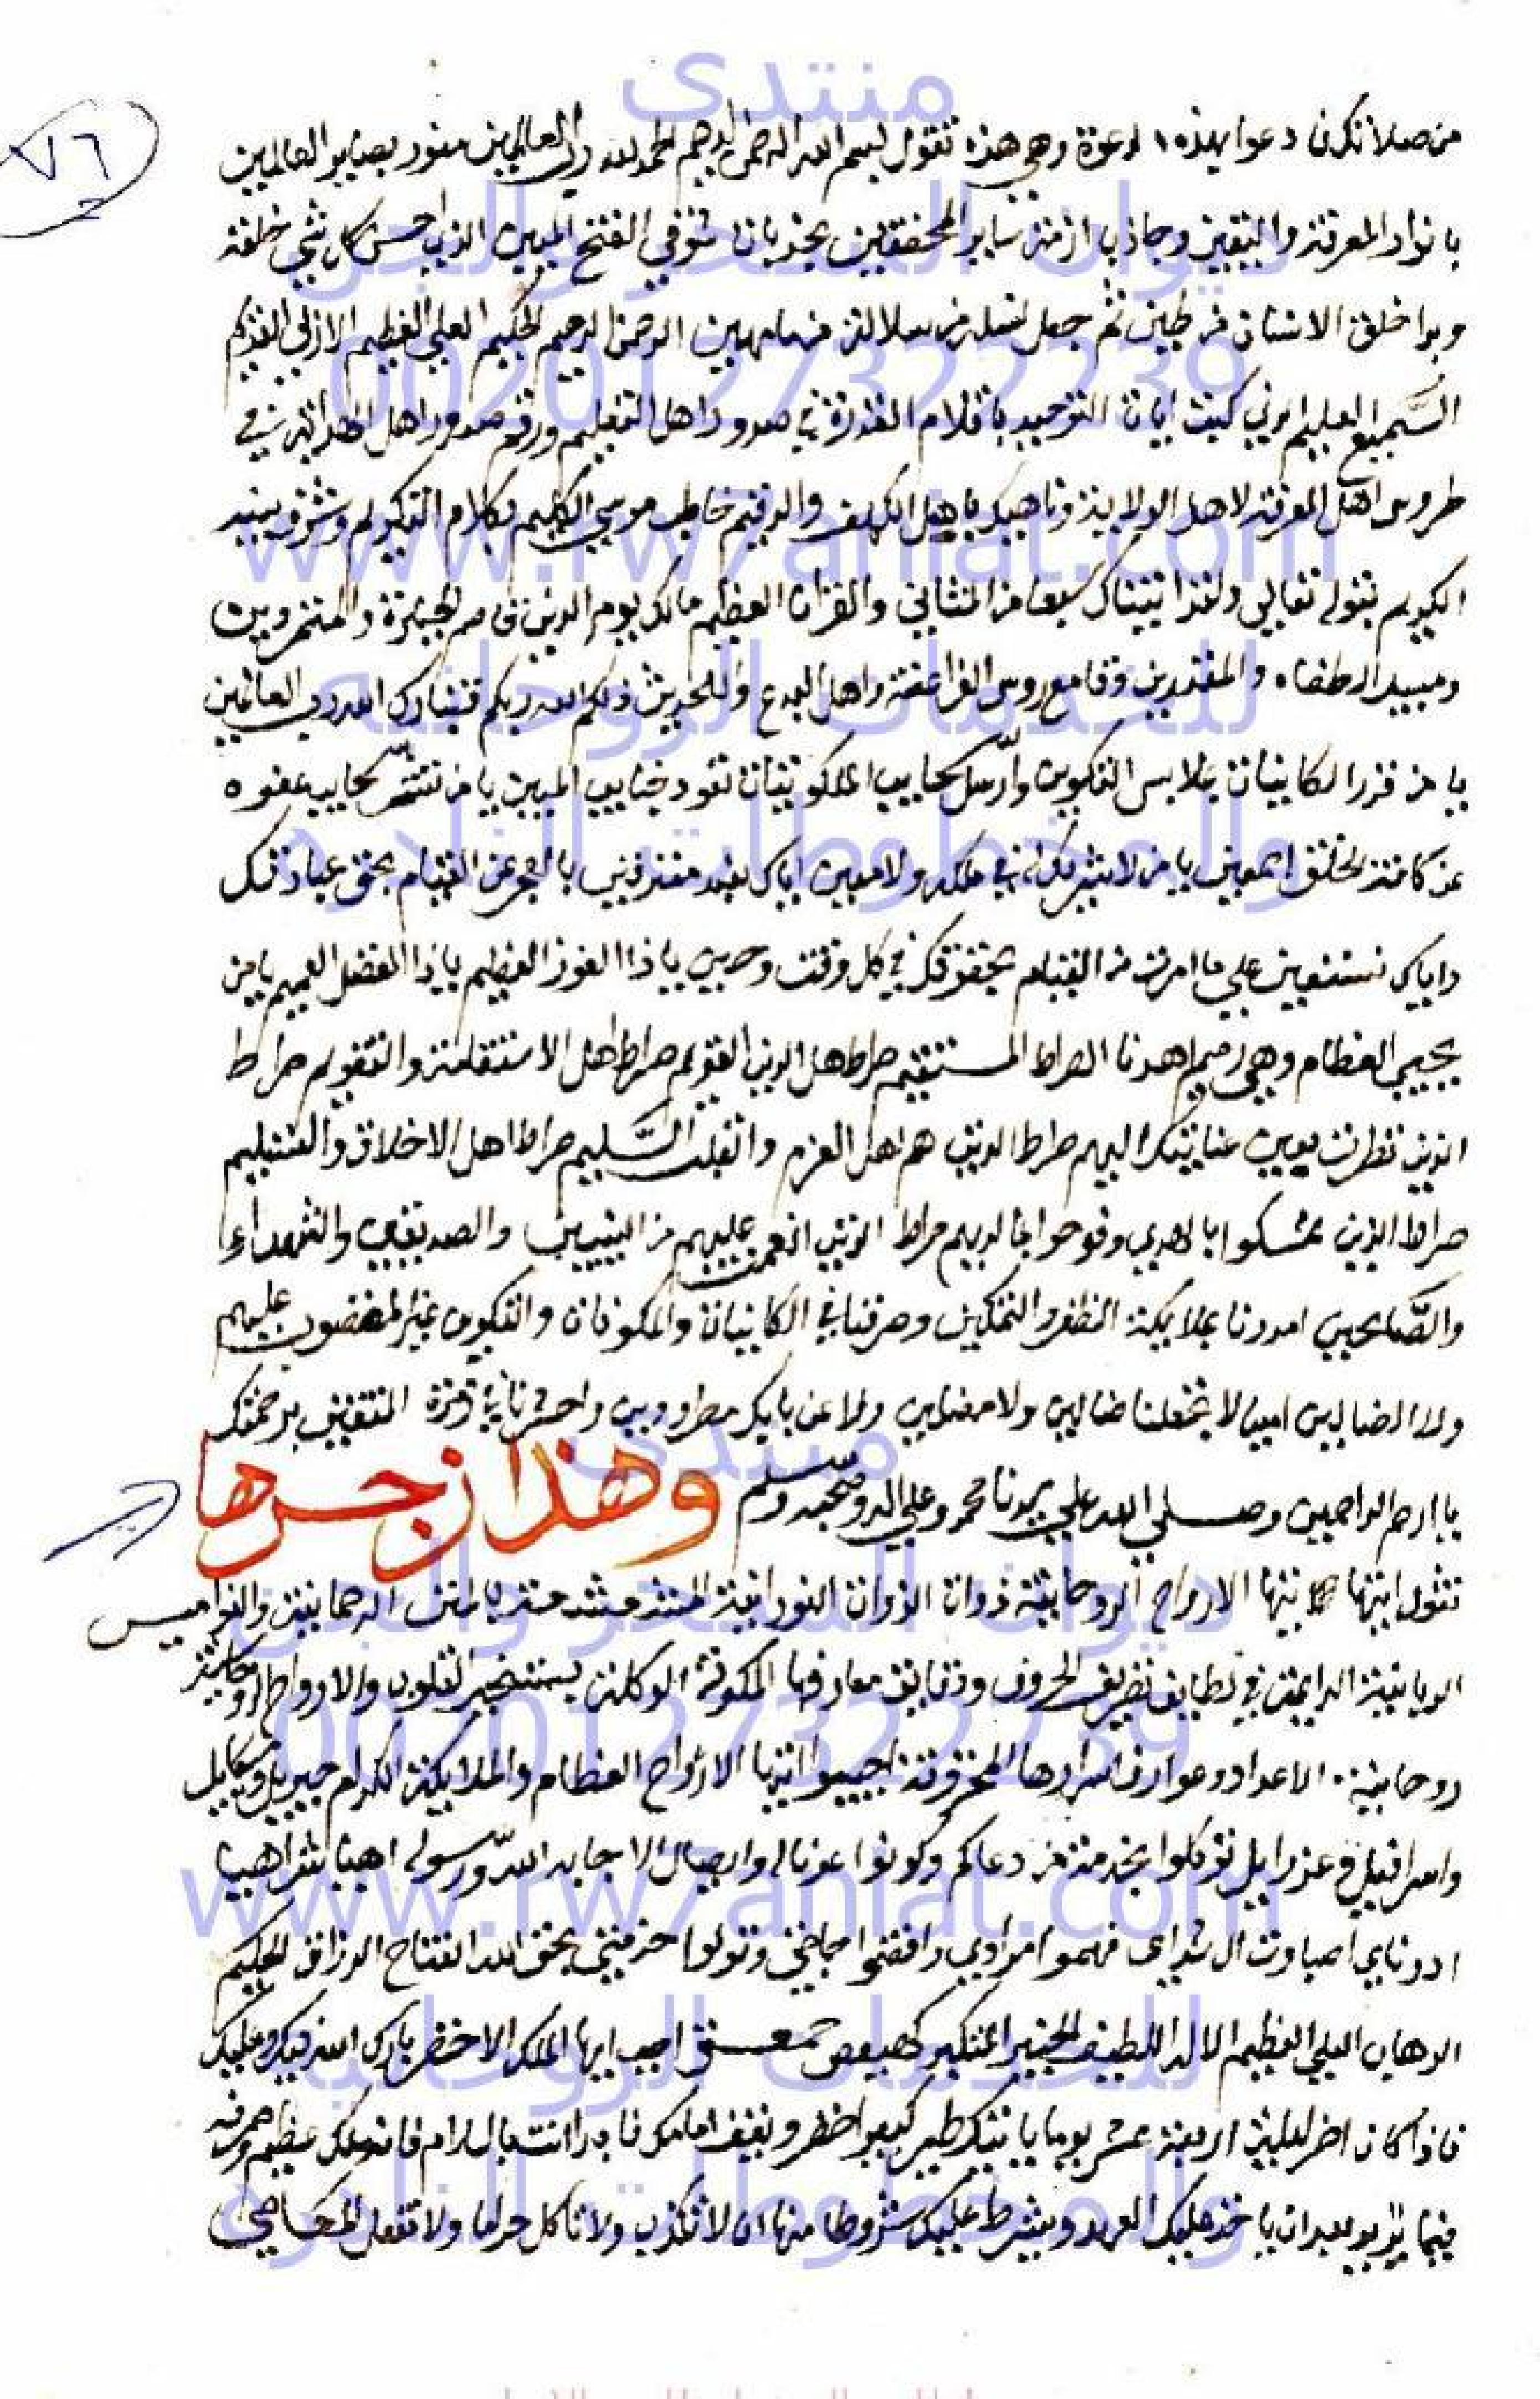 منتدى
٧٦
من صلاتك دعوا بهذه الدعوة وهي هذه تقول بسم الله الرحمن الرحيم الحمد لله رب العالمين منور بصاير العالمين
بانوار المعرفة واليقين وجاذب ازمة ساير المحققين بجذبات الفتح المبين الذي احسن كل شي خلقه
وبدا خلق الانسان من طين ثم جعل نسله من سلالة من ما مهين الرحمن الرحيم الحكيم العلي العظيم الازلي القديم
السميع العليم كتبت ايات التوحيد باقلام القدرة في صدور اهل التعليم ورقم صدور اهل الهداية في
طروس اهل المعرفة لاهل الولاية وناهيك باهل الكهف والرقيم خاطب موسى الكليم بكلام التكريم وشرف نبيه
الكريم بقوله تعالي ولقد اتيناك سبعا من المثاني والقران العظيم مالك يوم الدين الجبابرة والمتمردين
ومبيد الطغاه والمعتدين وقامع روس الفراعنة واهل البدع والملحدين ذلكم الله ربكم فتبارك الله رب العالمين
يا من الكاينات بملابس التكوين وارسل سحايب الملكوتيات المبين يا من سحايب عفوه
عن كافة الخلق اجمعين يا من لا شريك له في ملكه ولا معين اياك نعبد معترفين بالعجز عن القيام بحق عبادتك
واياك نستعين علي ما امرت من القيام بحقوقك في كل وقت وحين يا ذا الفوز العظيم يا ذا الفضل العميم يا من
يحيي العظام وهي رميم اهدنا الصراط المستقيم صراط اهل الدين القويم صراط اهل الاستقامة والتقويم صراط
الذين نظرت بعين عنايتك اليهم صراط الذين هم اهل العزم والقلب السليم صراط اهل الاخلاق والتسليم
صراط الذين تمسكوا بالهدي وفرحوا بما لديهم صراط الذين انعمت عليهم من النبيين والصديقين والشهداء
والصالحين امددنا بملايكة الظفر والتمكين وصرفنا في الكاينات والمكونات والتكوين غير المغضوب عليهم
ولا الضالين امين لا تجعلنا ضالين ولا مضلين ولا عن بابك مطرودين واحشرنا في زمرة المتقين برحمتك
يا ارحم الراحمين وصلي الله علي سيدنا محمد وعلي اله وصحبه وسلم وهذا زجرها
تقول ايتها الارواح الروحانية ذوات الذوات النورانية الرحمانية والنواميس
الربانية في لطايف تصريف الحروف ودقايق معارفها المكونة الوكلة بتسخير القلوب والارواح
روحانية الاعداد وعوارف اسرارها المحزوفة اجيبوا ايتها الارواح العظام والملايكة الكرام جبريل وميكايل
واسرافيل وعزرايل توكلوا بخدمة من دعاكم وكونوا عونا له الاجابه الله ورسوله اهيا شراهيا
ادوناي اصباوت ال شداي امرادي واقضوا حاجتي وتولوا خدمتي بحق الله الفتاح الرزاق الحكيم
الوهاب العلي العظيم الاله اللطيف الخبير المتكبر كهيعص حمعسق اجب ايها الملك الاخضر بارك الله فيك وعليك
فاذا كان اخر ليلة الاربعة عشر يوما ياتيك طير كبير اخضر ويقف امامك فابدا انت بالسلام فانه ملك عظيم
فيما تريد بعد ان ياخذ عليك العهد ويشرط عليك شروطا منها ان لا تكذب ولا تاكل حراما ولا تفعل المعاصي
ديوان السحر والجن
0020127322239
www.rw7aniat.com
للخدمات الروحانيه
والمخطوطات النادره
منتدى
ديوان السحر والجن
0020127322239
www.rw7aniat.com
للخدمات الروحانيه
والمخطوطات النادره